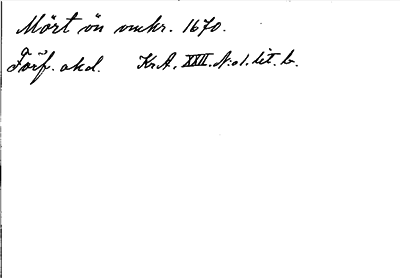 Mört ön omkr. 1670.
Förf. okd. Kr.A. XXII. N:o 1. lit. b.